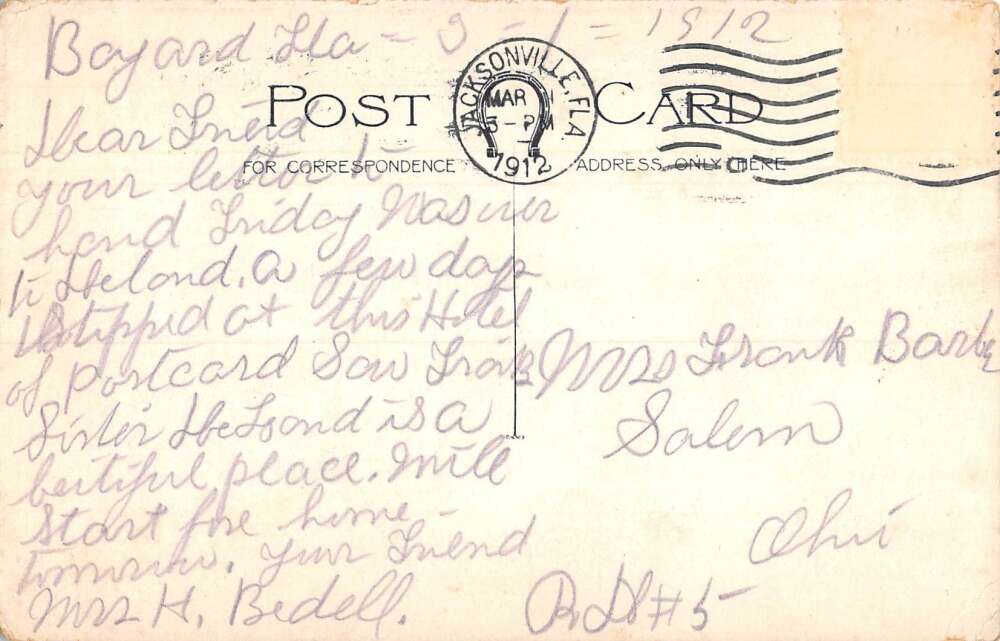 Bayard Fla - 3 - 1 = 1912
POST CARD
JACKSONVILLE, FLA.
MAR 1
3 - PM
1912
FOR CORRESPONDENCE
ADDRESS ONLY HERE
Dear Friend
your letter to
hand Friday Was over
to Deland. a few days
stopped at this Hotel
of postcard Saw Frank
Sister Deland is a
beutiful place. Mill
start fore home -
tomorrow. your Friend
Mrs H. Bedell.
Mrs Frank Barbe
Salem
Ohio
R D #5